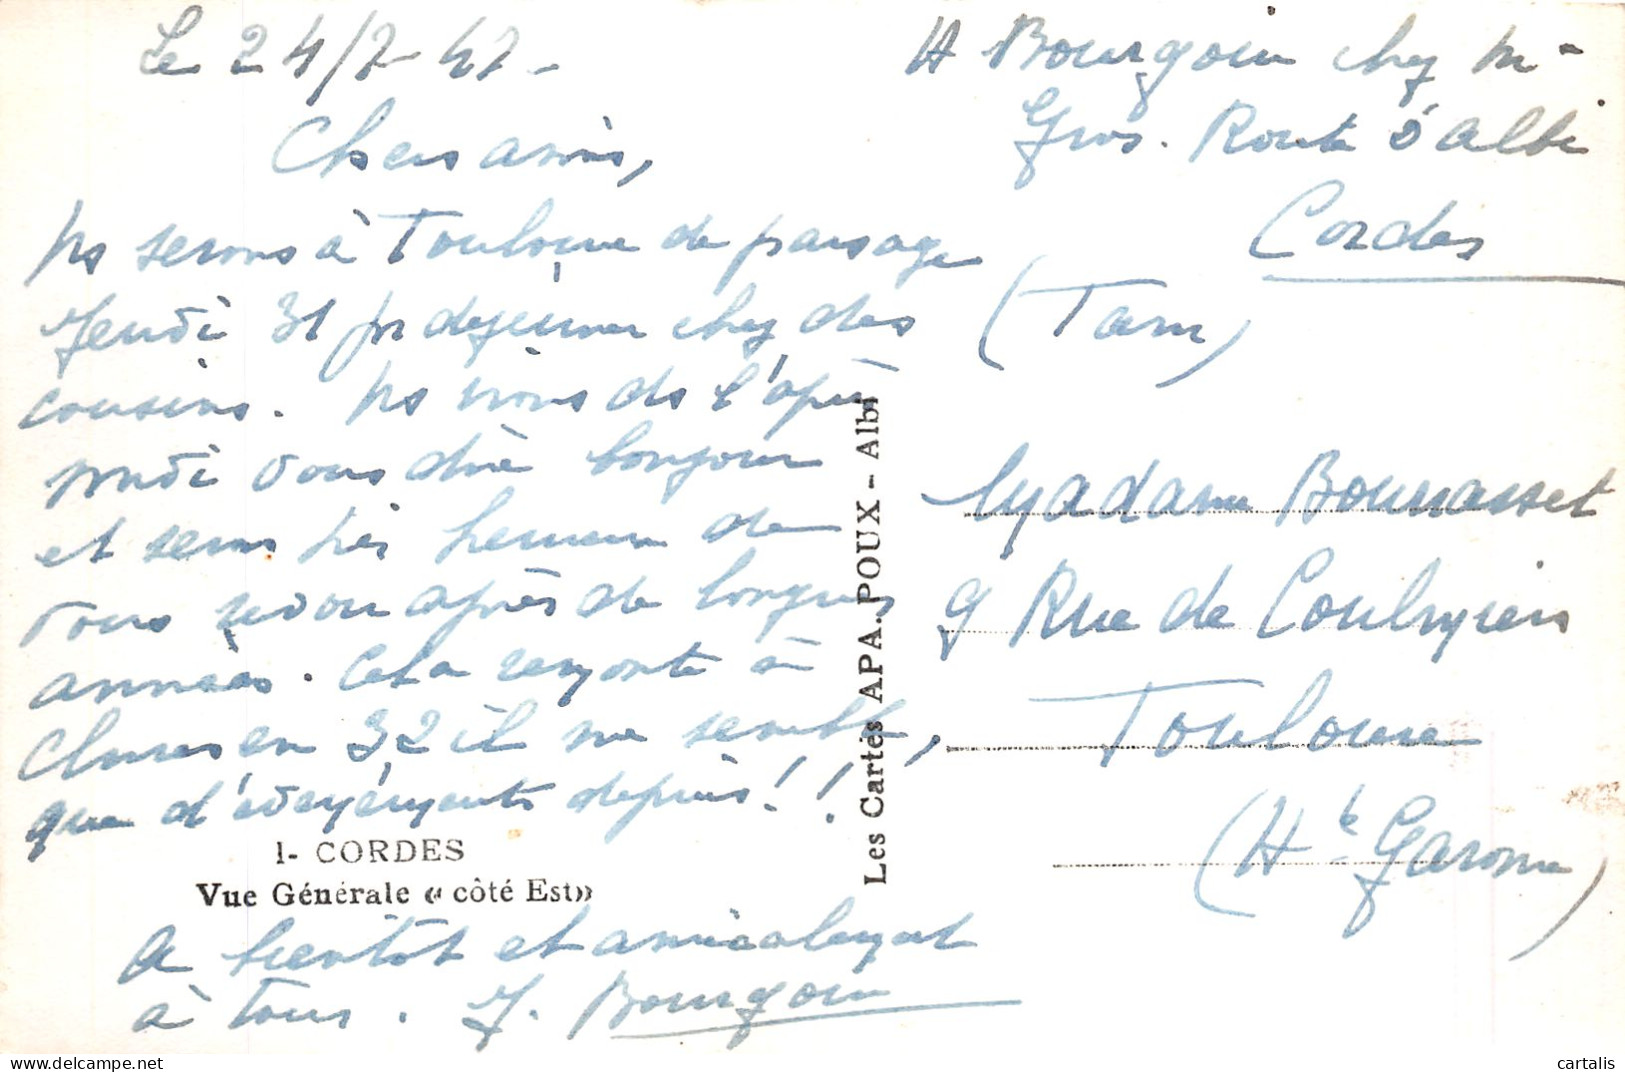 Le 24/7-47-
Chers amis,
Ns serons à Toulouse de passage
Jeudi 31 pr dejeuner chez des
cousins. Ns irons ds l'après
midi vous dire bonjour
et serons très heureux de
vous revoir après de longues
années. Cela remonte à
en 32 il me semble,
que d'évènements depuis!!
1- CORDES
Vue Générale « côté Est»
A bientôt et amicalement
à tous. J. Bourgoin
Les Cartes APA. POUX - Albi
H Bourgoin chez Mr
Gros. Route d'Albi
Cordes
(Tarn)
Madame Bourrasset
9 Rue de
Toulouse
(Hte Garonne)
cartalis